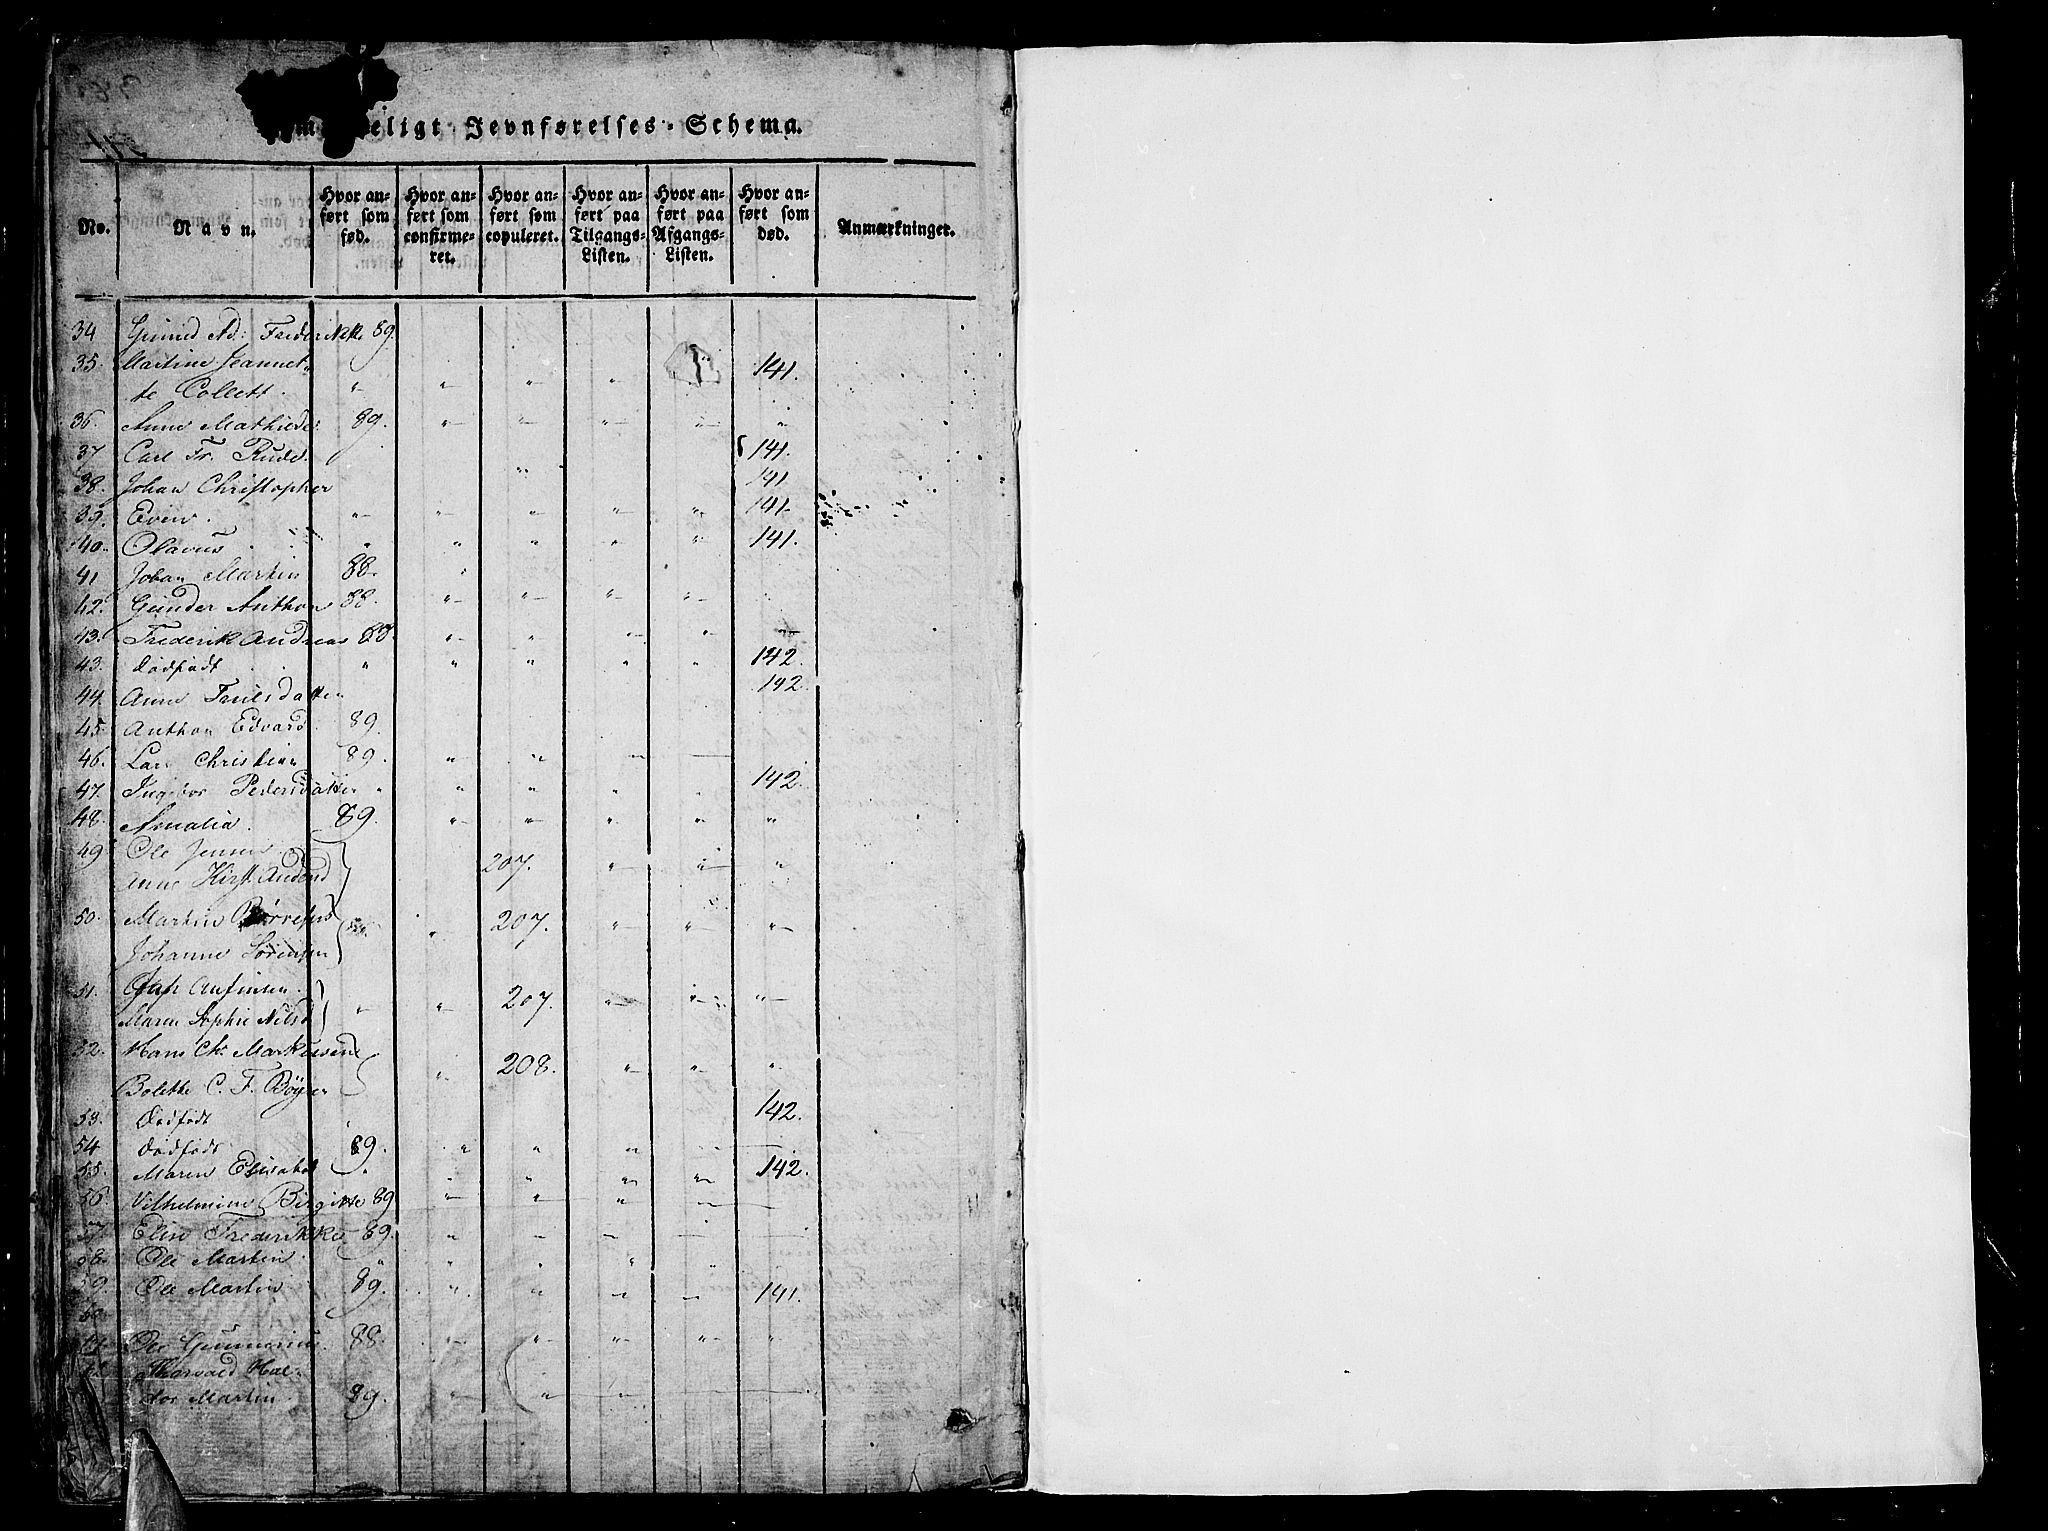 eligt Jevnførelses-Schema.
No. Navn. Hvor anført som fød. Hvor anført som confirmeret. Hvor anført som copuleret. Hvor anført paa Tilgangs-Listen. Hvor anført paa Afgangs-Listen. Hvor anført som død. Anmærkninger.
34 Frederikke 89.
35. Martine Jeannet-
te Collett. 141.
36. Anne Mathilde 89.
37 Carl Fr. Rude. 141.
38. Johan Christopher 141
39. Even. 141.
40. Olavus 141.
41 Johan Martin 88.
42. Gunder Anthon 88.
43. Frederik Andreas 88.
43. Dødfødt 142.
44. Anne 142.
45. Anthon Edvard 89.
46. Lars Christian 89.
47. Ingebor Pedersdatter 142.
48. Amalia. 89.
49 Ole Jensen
Anne Kirst. 207.
50. Martin 207.
Johanne Sørensen
51. 207.
Maren Sophie Nilsd
52. Hans Chr. Markusen 208.
Bolette C. F. Böyer
53. Dødfødt 142.
54. Dødfødt 89.
55. Maren Elisabet 142.
56. Vilhelmine Birgitte 89
57 Elise Frederikke 89.
58. Ole Martin
59. Ole Martin 89. 141.
60
Gunnerius. 88.
Thorvald Hal-
Martin 89.